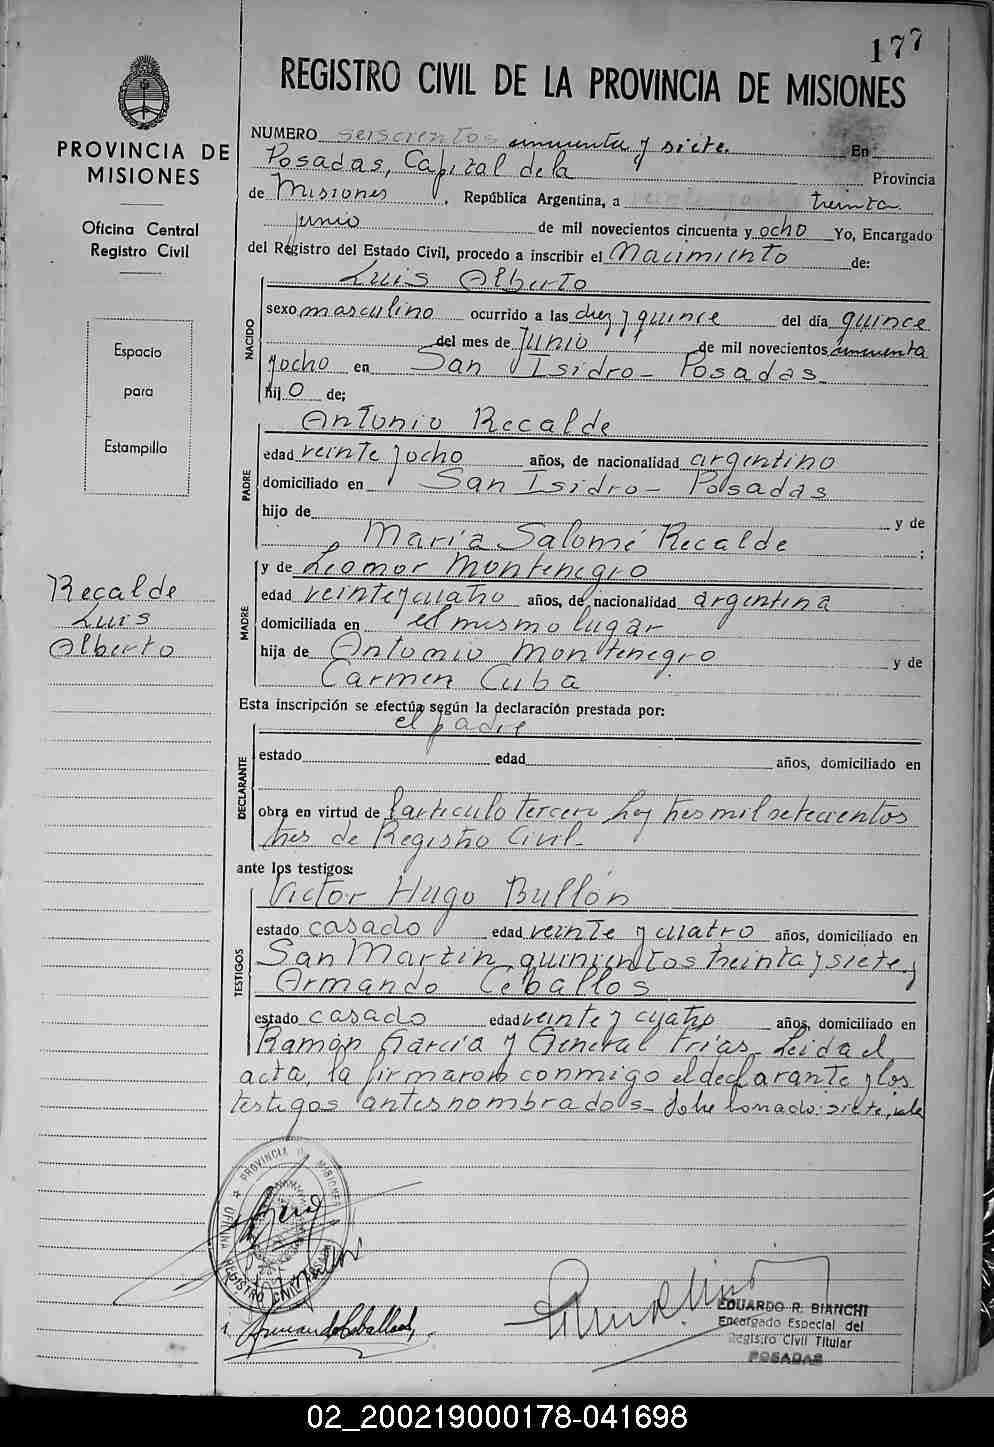 177
REGISTRO CIVIL DE LA PROVINCIA DE MISIONES
PROVINCIA DE
MISIONES
Oficina Central
Registro Civil
Espacio
para
Estampilla
Recalde
Luis
Alberto
NUMERO seiscientos cincuenta y siete. En
Posadas, Capital de la Provincia
de Misiones, República Argentina, a treinta
junio de mil novecientos cincuenta y ocho Yo, Encargado
del Registro del Estado Civil, procedo a inscribir el Nacimiento de:
NACIDO
Luis Alberto
sexo masculino ocurrido a las diez y quince del día quince
del mes de Junio de mil novecientos cincuenta
y ocho en San Isidro - Posadas
hijo de;
PADRE
Antonio Recalde
edad veinte y ocho años, de nacionalidad argentino
domiciliado en San Isidro - Posadas
hijo de y de
María Salomé Recalde ;
MADRE
y de Leomor Montenegro
edad veinte y cuatro años, de nacionalidad argentina
domiciliada en el mismo lugar
hija de Antonio Montenegro y de
Carmen Cuba
Esta inscripción se efectúa según la declaración prestada por:
el padre
DECLARANTE
estado edad años, domiciliado en
obra en virtud de l'articulo tercero ley tres mil setecientos
tres de Registro Civil.
ante los testigos:
TESTIGOS
Victor Hugo Bullón
estado casado edad veinte y cuatro años, domiciliado en
San Martin quinientos treinta y siete y
Armando Ceballos
estado casado edad veinte y cuatro años, domiciliado en
Ramón García y General Frías. Leida el
acta, la firmaron conmigo el declarante y los
testigos antes nombrados - Sobre borrado: siete, vale
PROVINCIA DE MISIONES
OFICINA REGISTRO CIVIL
Armando Ceballos
EDUARDO R. BIANCHI
Encargado Especial del
Registro Civil Titular
POSADAS
02_200219000178-041698